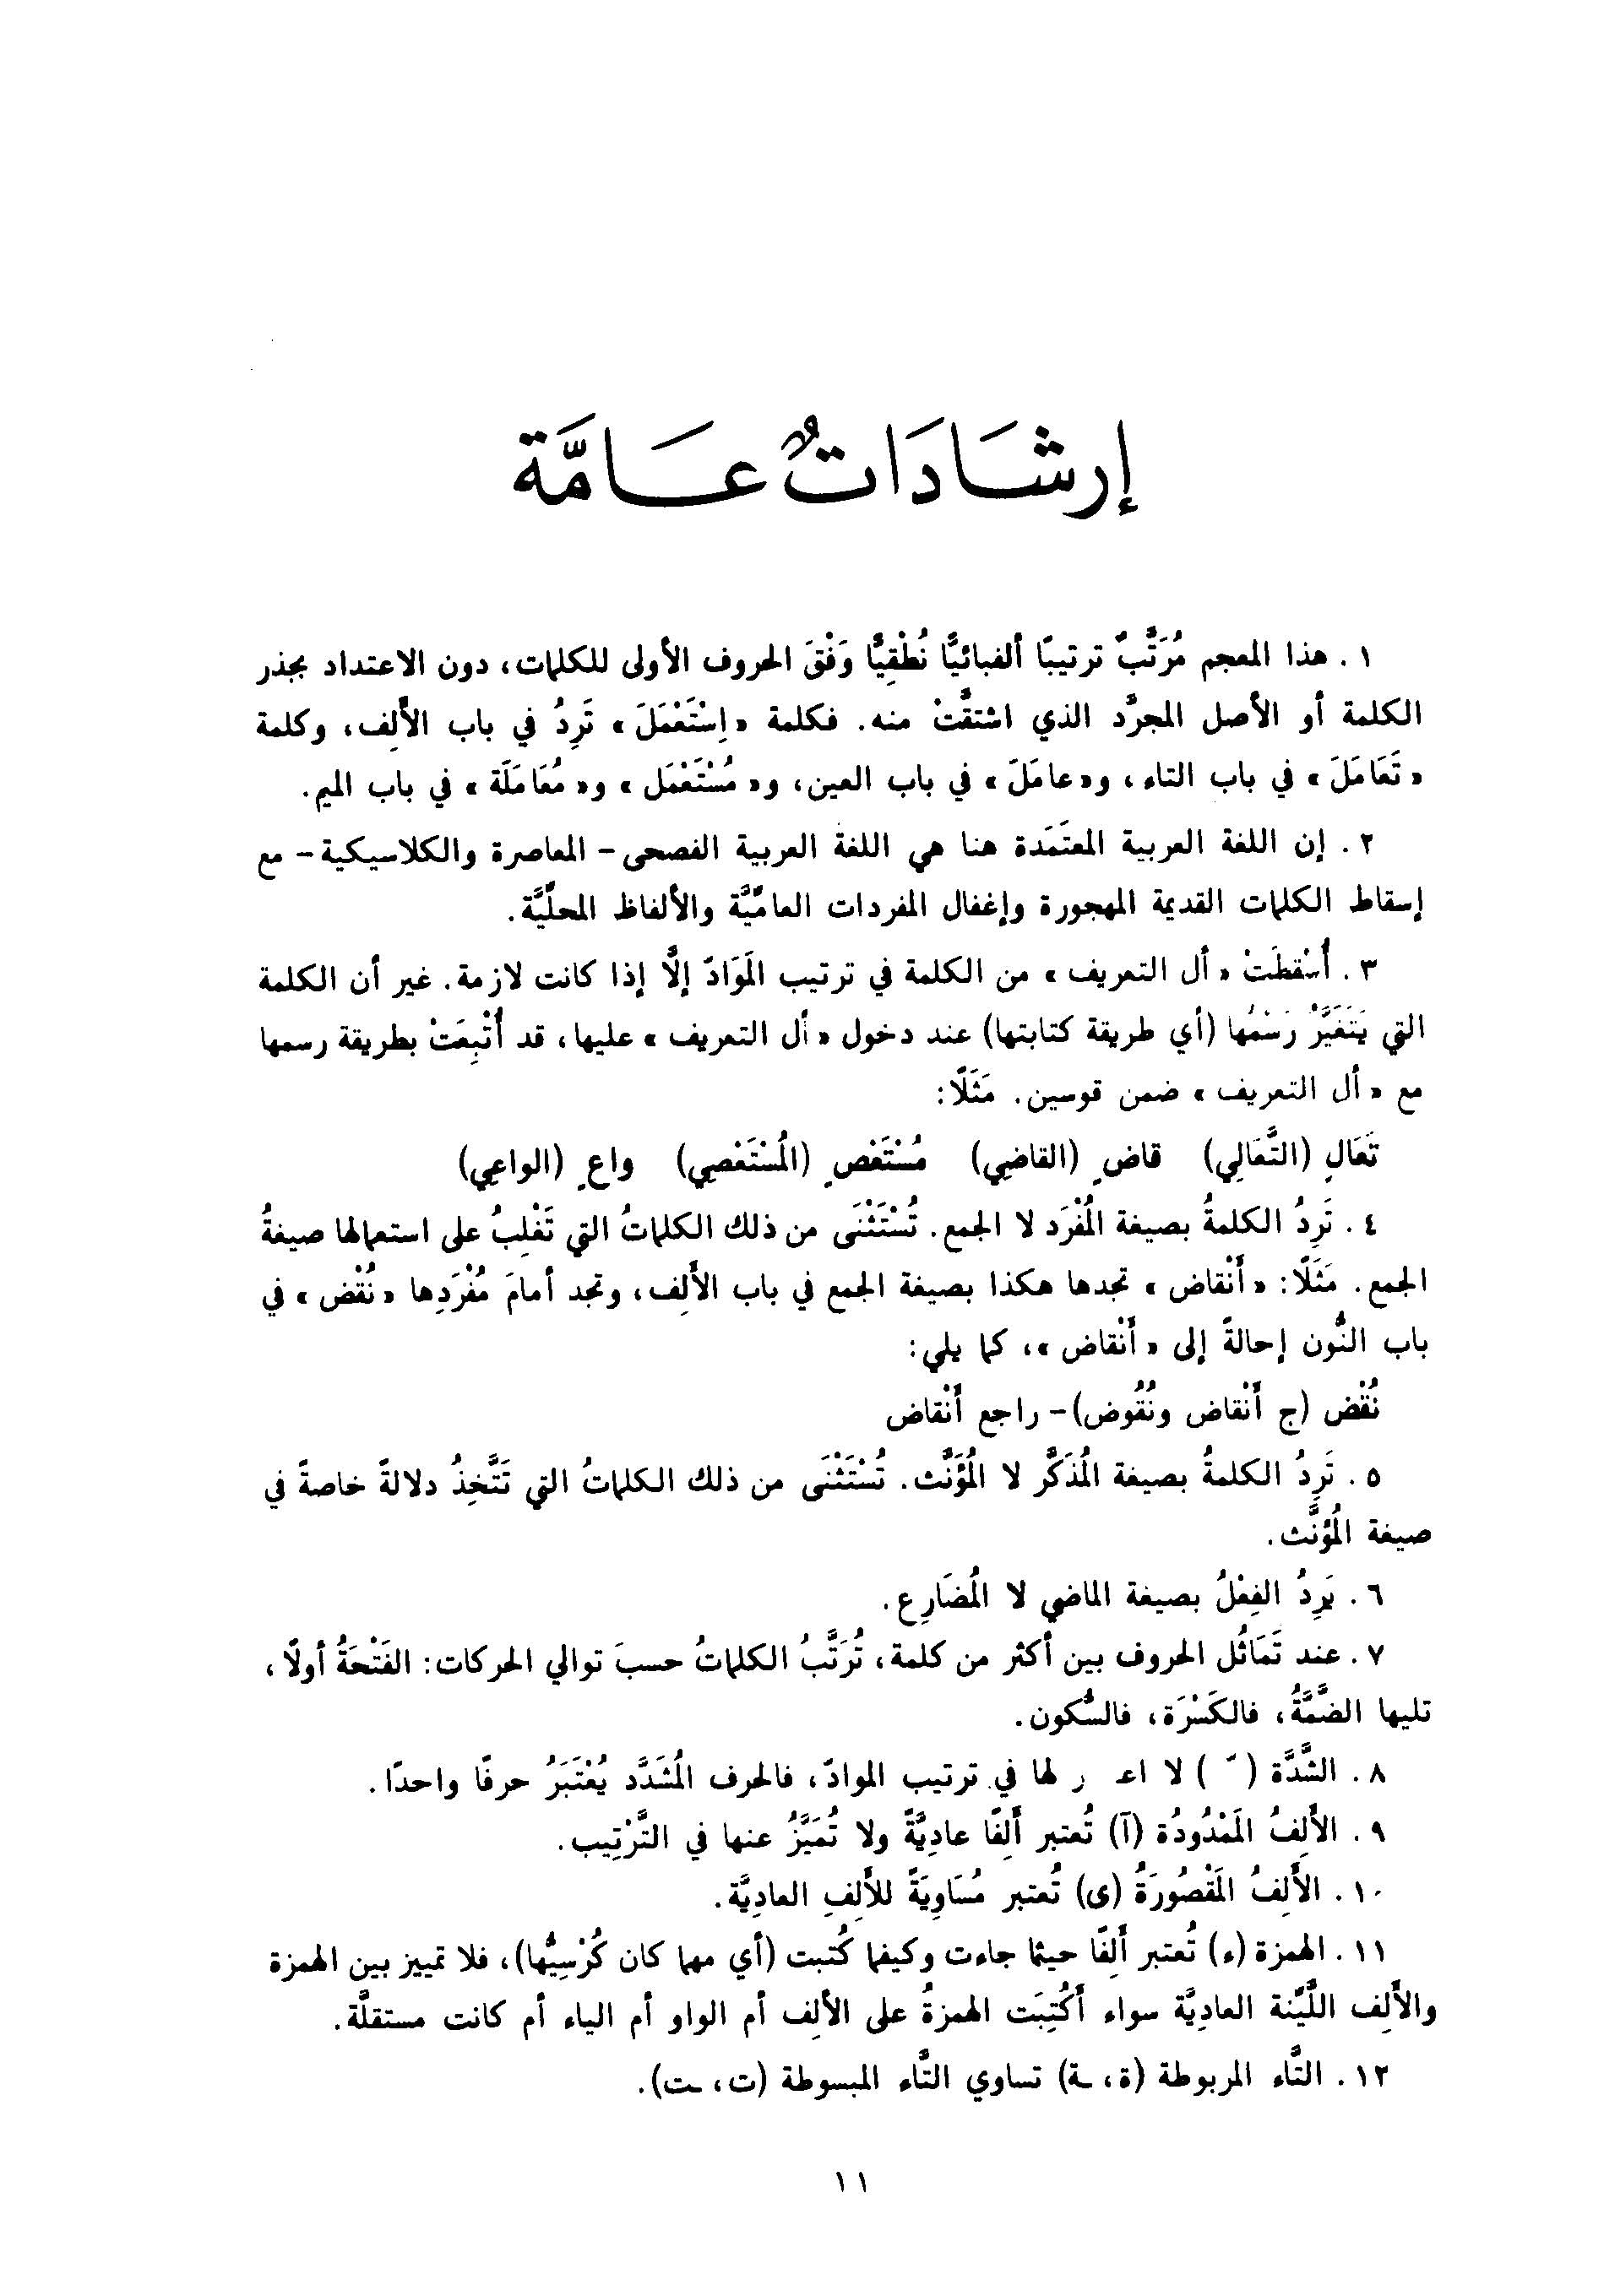 إرشَادَاتٌ عَامَّة
١ . هذا المعجم مُرَتَّبٌ ترتيبًا ألفبائيًّا نُطْقِيًّا وَفْقَ الحروف الأولى للكلمات، دون الاعتداد بجذر
الكلمة أو الأصل المجرَّد الذي اشتقَّتْ منه. فكلمة «إسْتَعْمَلَ» تَرِدُ في باب الأَلِف، وكلمة
«تَعَامَلَ» في باب التاء، و«عامَلَ» في باب العين، و« مُسْتَعْمَل» و« مُعَامَلَة» في باب الميم.
٢ . إن اللغة العربية المعتَمَدة هنا هي اللغة العربية الفصحى – المعاصرة والكلاسيكية – مع
إسقاط الكلمات القديمة المهجورة وإغفال المفردات العامِّيَّة والألفاظ المحلّيَّة.
٣ . أُسْقِطَتْ «أل التعريف» من الكلمة في ترتيب المَوَادّ إلَّا إذا كانت لازمة. غير أن الكلمة
التي يَتَغَيَّرُ رَسْمُها (أي طريقة كتابتها) عند دخول «أل التعريف» عليها، قد أُتْبِعَتْ بطريقة رسمها
مع «أل التعريف» ضمن قوسين. مَثَلًا:
تَعَالٍ (التَّعَالِي) قاضٍ (القاضِي) مُسْتَعْصٍ (المُسْتَعْصِي) واعٍ (الواعِي)
٤ . تَرِدُ الكلمةُ بصيغة المُفْرَد لا الجمع. تُسْتَثْنَى من ذلك الكلماتُ التي تَغْلِبُ على استعمالها صيغةُ
الجمع. مَثَلًا: «أَنْقاض» تجدها هكذا بصيغة الجمع في باب الأَلِف، وتجد أمامَ مُفْرَدِها «نُقْض» في
باب النُّون إحالةً إلى «أَنْقاض»، كما يلي:
نُقْض (ج أَنْقاض ونُقُوض) – راجع أَنْقاض
٥ . تَرِدُ الكلمةُ بصيغة المُذَكَّر لا المُؤَنَّث. تُسْتَثْنَى من ذلك الكلماتُ التي تَتَّخِذُ دلالةً خاصةً في
صيغة المُؤنَّث.
٦ . يَرِدُ الفِعْلُ بصيغة الماضي لا المُضَارِع.
٧ . عند تَمَاثُل الحروف بين أكثر من كلمة، تُرَتَّبُ الكلماتُ حسبَ توالي الحركات: الفَتْحَةُ أولًا،
تليها الضَّمَّةُ، فالكَسْرَة، فالسُّكون.
٨ . الشَّدَّة ( ّ ) لا لها في ترتيب الموادّ، فالحرف المُشَدَّد يُعْتَبَرُ حرفًا واحدًا.
٩ . الأَلِفُ المَمْدُودُة (آ) تُعتبر أَلِفًا عادِيَّةً ولا تُمَيَّزُ عنها في التَّرْتِيب.
١٠ . الأَلِفُ المَقْصُورَةُ (ى) تُعتبر مُسَاوِيَةً للأَلِفِ العادِيَّة.
١١ . الهمزة (ء) تُعتبر أَلِفًا حيثما جاءت وكيفما كُتبت (أي مهما كان كُرْسِيُّها)، فلا تمييز بين الهمزة
والأَلِف اللَّيِّنة العادِيَّة سواء أَكُتِبَت الهمزةُ على الأَلِف أم الواو أم الياء أم كانت مستقلَّة.
١٢ . التَّاء المربوطة (ة، ـة) تساوي التَّاء المبسوطة (ت، ـت).
١١